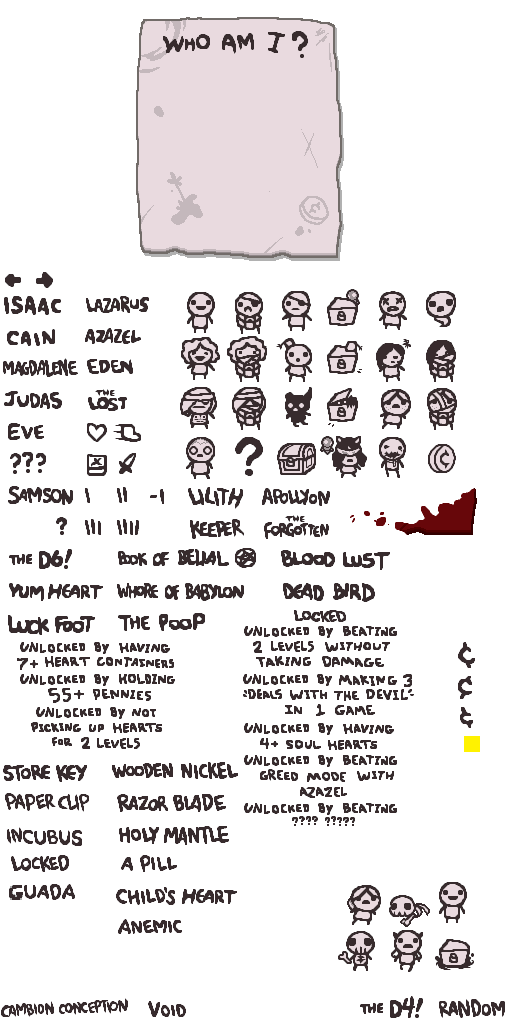 WHO AM I?
ISAAC LAZARUS
CAIN AZAZEL
MAGDALENE EDEN
JUDAS THE LOST
EVE
???
?
SAMSON I II -I LILITH APOLLYON
? III IIII KEEPER THE FORGOTTEN
THE D6! BOOK OF BELIAL BLOOD LUST
YUM HEART WHORE OF BABYLON DEAD BIRD
LUCK FOOT THE POOP
LOCKED
UNLOCKED BY BEATING
2 LEVELS WITHOUT
TAKING DAMAGE
UNLOCKED BY HAVING
7+ HEART CONTAINERS
UNLOCKED BY HOLDING
55+ PENNIES
UNLOCKED BY NOT
PICKING UP HEARTS
FOR 2 LEVELS
UNLOCKED BY MAKING 3
"DEALS WITH THE DEVIL"
IN 1 GAME
UNLOCKED BY HAVING
4+ SOUL HEARTS
UNLOCKED BY BEATING
GREED MODE WITH
AZAZEL
UNLOCKED BY BEATING
???? ?????
¢
¢
¢
STORE KEY WOODEN NICKEL
PAPER CLIP RAZOR BLADE
INCUBUS HOLY MANTLE
LOCKED A PILL
GUADA CHILD'S HEART
ANEMIC
CAMBION CONCEPTION VOID THE D4! RANDOM